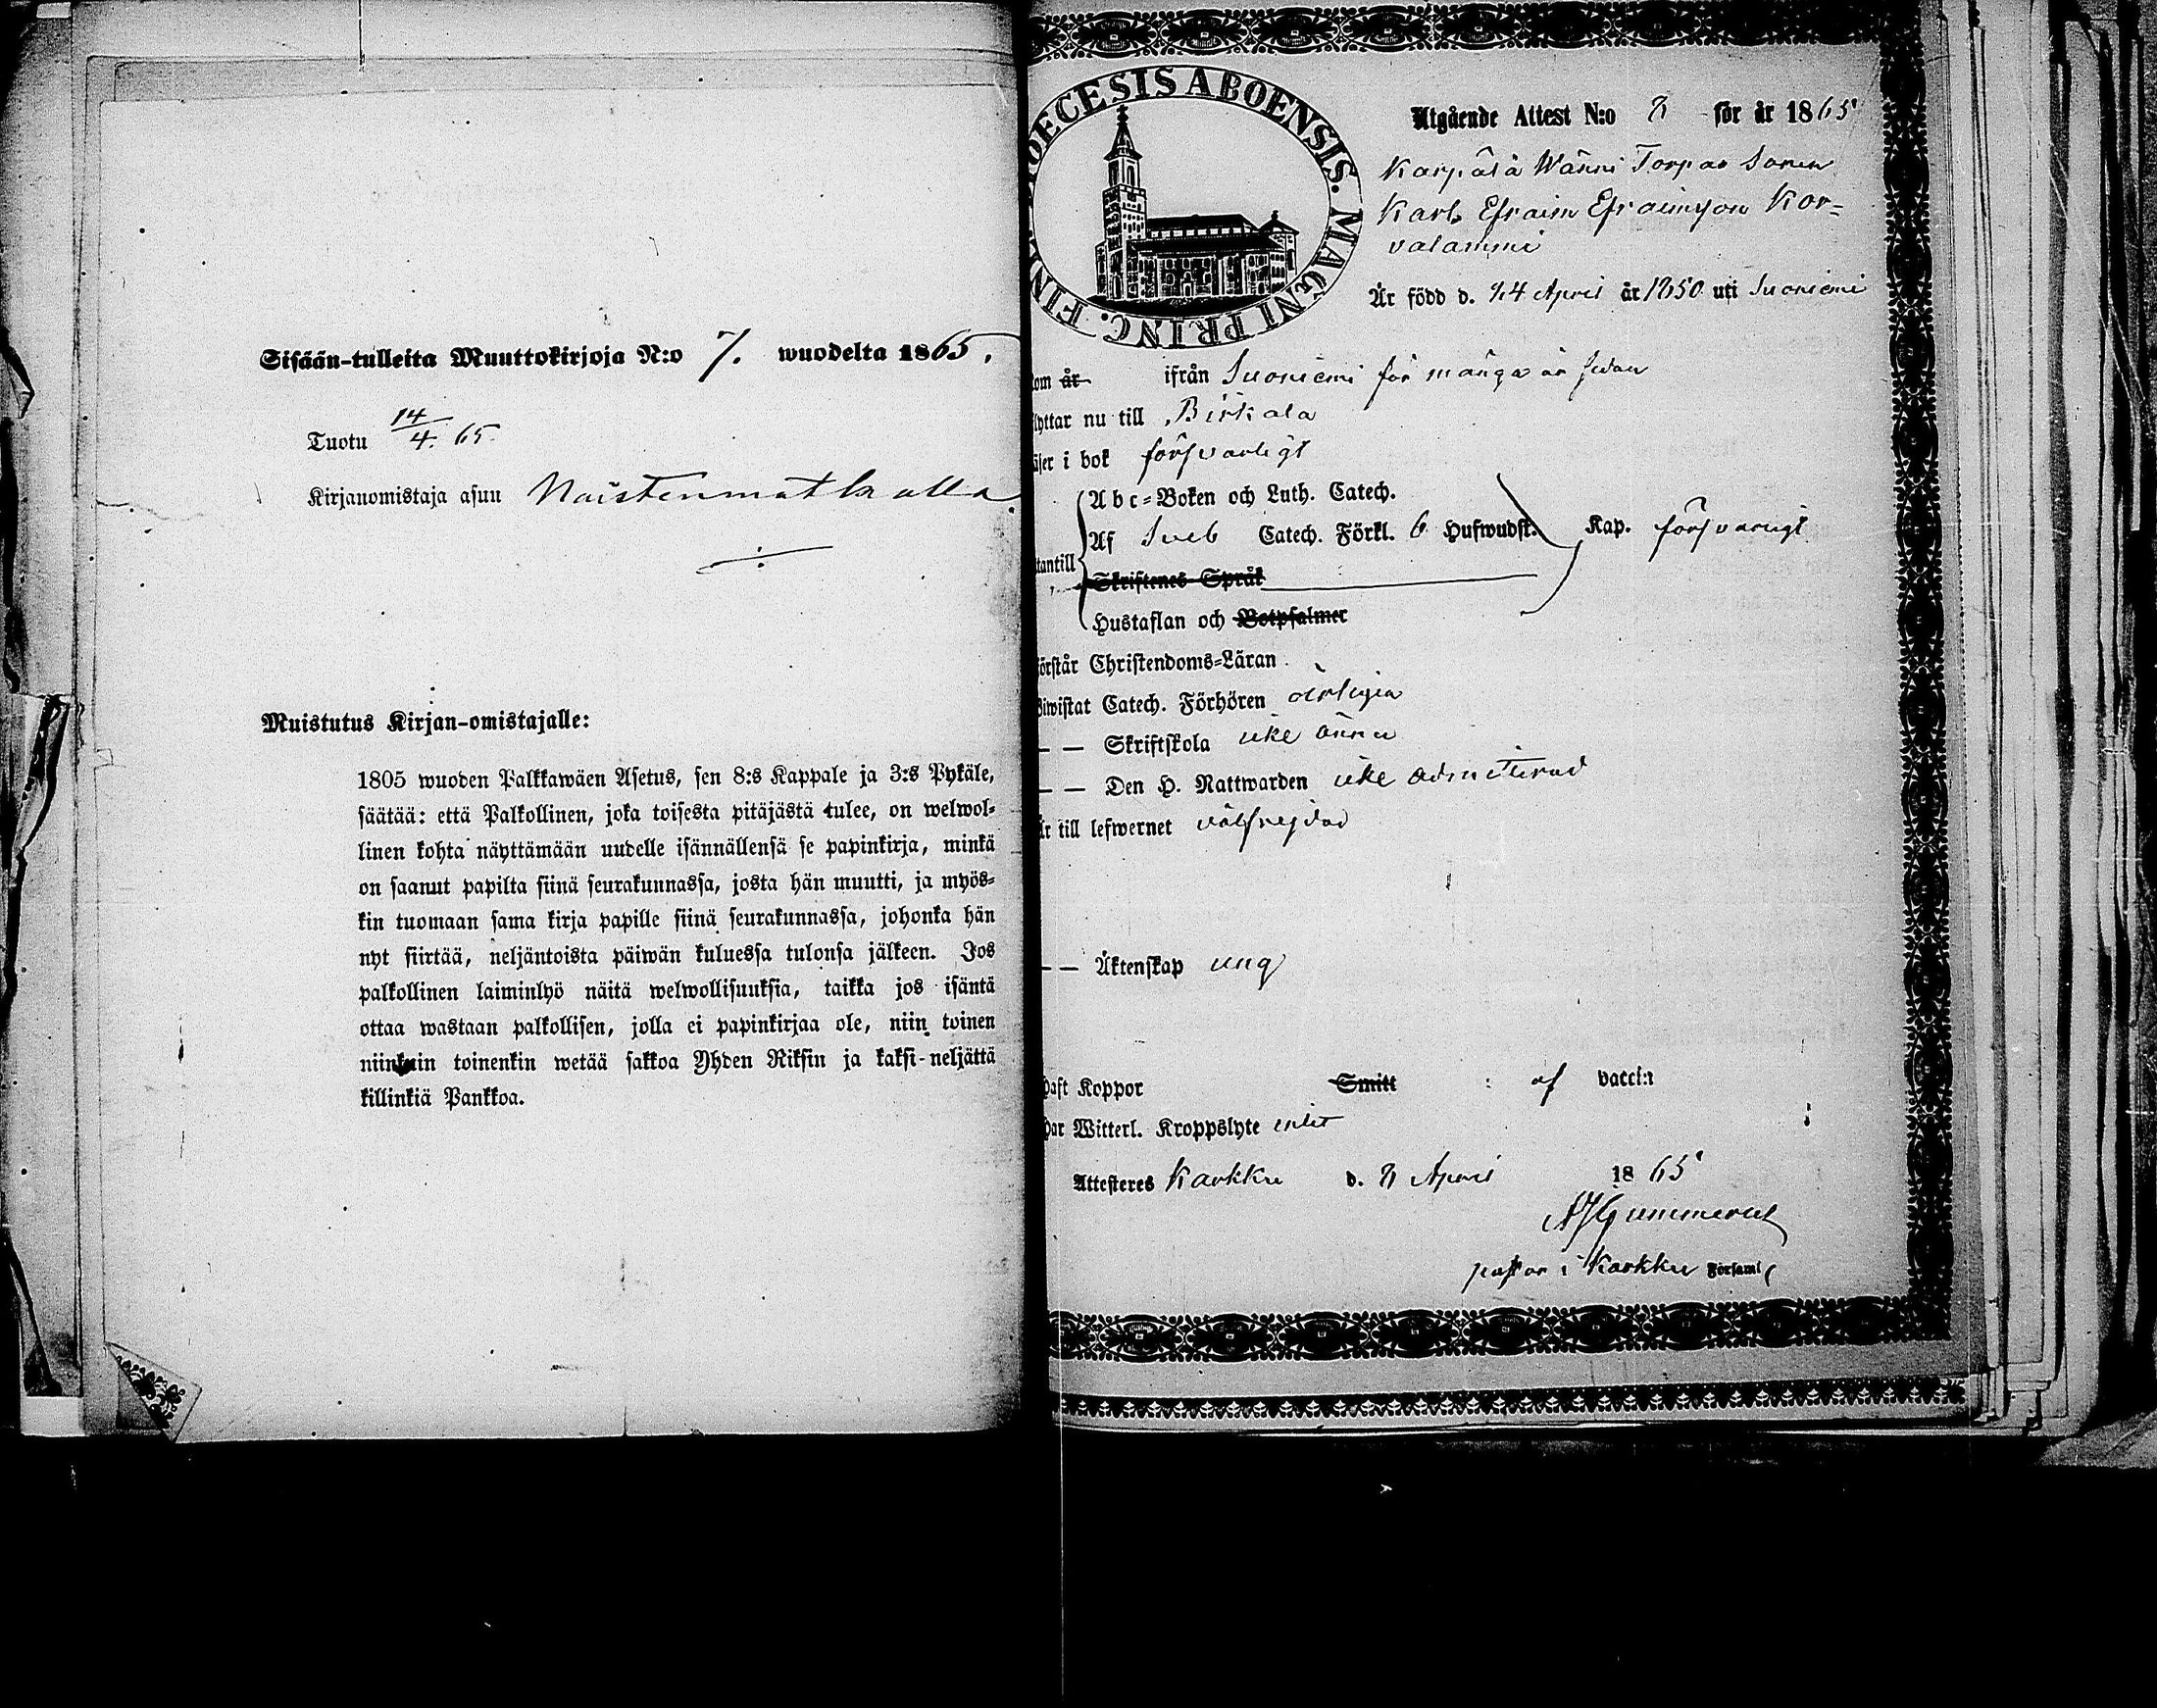 Sisään-tulleita Muuttokirjoja N:o 7. wuodelta 1865.
Tuotu 14/4. 65.
Kirjanomistaja asuu Naistenmatkalla
Muistutus Kirjan-omistajalle:
1805 wuoden Palkkawäen Asetus, sen 8:s Kappale ja 3:s Pykäle,
säätää: että Palkollinen, joka toisesta pitäjästä tulee, on welwol-
linen kohta näyttämään uudelle isännällensä se papinkirja, minkä
on saanut papilta siinä seurakunnassa, josta hän muutti, ja myös-
kin tuomaan sama kirja papille siinä seurakunnassa, johonka hän
nyt siirtää, neljäntoista päiwän kuluessa tulonsa jälkeen. Jos
palkollinen laiminlyö näitä welwollisuuksia, taikka jos isäntä
ottaa wastaan palkollisen, jolla ei papinkirjaa ole, niin toinen
niinkuin toinenkin wetää sakkoa Yhden Riksin ja kaksi-neljättä
killinkiä Pankkoa.
OECESIS ABOENSIS. MAGNI PRINC. FIN
Utgående Attest N:o 8 för år 1865
Karpälä Wänni Torpare Sonen
Karl Efraim Efraimsson Kor=
valammi
Är född d. 14 April år 1850 uti Suoniemi
om år ifrån Suoniemi för många år sedan
lyttar nu till Birkala
äser i bok försvarligt
Abc=Boken och Luth. Catech.
Af Sveb Catech. Förkl. 6 Hufwudst. Kap. försvarligt
tantill
Skriftenes Språk
Hustaflan och Botpsalmer
örstår Christendoms=Läran
Biwistat Catech. Förhören årligen
— — Skriftskola icke ännu
— — Den H. Nattwarden icke admitterad
Är till lefwernet välfrejdad
— — Äktenskap ung
haft Koppor Smitt : af vacci:n
har Witterl. Kroppslyte intet
Attesteres Karkku d. 8 April 1865
Gummerus
pastor i Karkku Församl